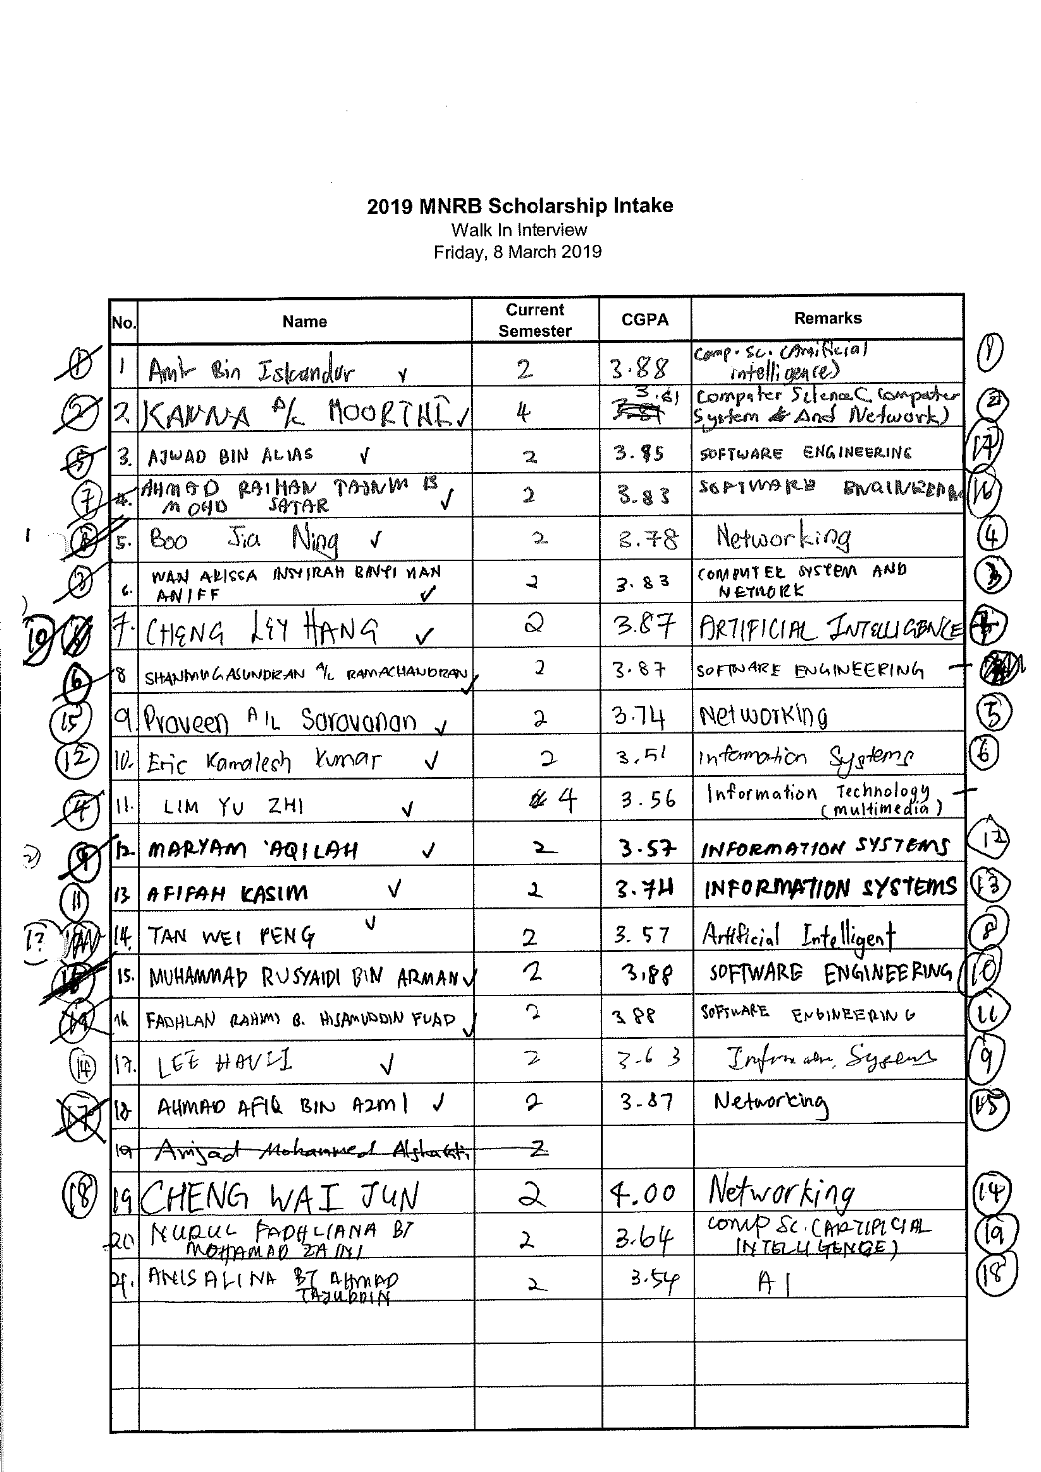 2019 MNRB Scholarship Intake
Walk In Interview
Friday, 8 March 2019
No. Name Current Semester CGPA Remarks
1 1 Amir Bin Iskandar ✓ 2 3.88 Comp. Sc. (Artificial intelligence) 1
2 2. KANNA A/L MOORTHI ✓ 4 3.61 Computer Science (Computer System & And Network) 2
5 3. AJWAD BIN ALIAS ✓ 2 3.85 SOFTWARE ENGINEERING 17
7 4. AHMAD RAIHAN TAJNIM B MOHD SATAR ✓ 2 3.83 SOFTWARE ENGINEERING 16
1 5. Boo Jia Ning ✓ 2 3.78 Networking 4
3 6. WAN ARISSA INSYIRAH BINTI WAN ANIFF ✓ 2 3.83 COMPUTER SYSTEM AND NETWORK 3
10 7. CHENG LEY HANG ✓ 2 3.87 ARTIFICIAL INTELLIGENCE 7
6 8 SHANMUGASUNDRAN A/L RAMACHANDRAN ✓ 2 3.87 SOFTWARE ENGINEERING -
15 9. Praveen A/L Saravanan ✓ 2 3.74 Networking 5
12 10. Eric Kamalesh Kumar ✓ 2 3.51 Information Systems 6
4 11. LIM YU ZHI ✓ 4 3.56 Information Technology (multimedia) -
2) 9 12. MARYAM 'AQILAH ✓ 2 3.57 INFORMATION SYSTEMS 12
11 13. AFIFAH KASIM ✓ 2 3.74 INFORMATION SYSTEMS 13
13 14. TAN WEI PENG ✓ 2 3.57 Artificial Intelligent 8
15. MUHAMMAD RUSYAIDI BIN ARMAN ✓ 2 3.88 SOFTWARE ENGINEERING 10
16. FADHLAN RAHIMI B. HISAMUDDIN FUAD ✓ 2 3.88 SOFTWARE ENGINEERING 11
17. LEE ✓ 2 3.63 9
17 18. AHMAD AFIQ BIN AZMI ✓ 2 3.87 Networking 15
19 Amjad Mohammed 2
18 19 CHENG WAI JUN 2 4.00 Networking 14
20 NURUL FADHLIANA BT MOHAMAD ZAINI 2 3.64 COMP SC. (ARTIFICIAL INTELLIGENCE) 19
21. ANIS ALINA BT AHMAD TAJUDDIN 2 3.54 AI 18